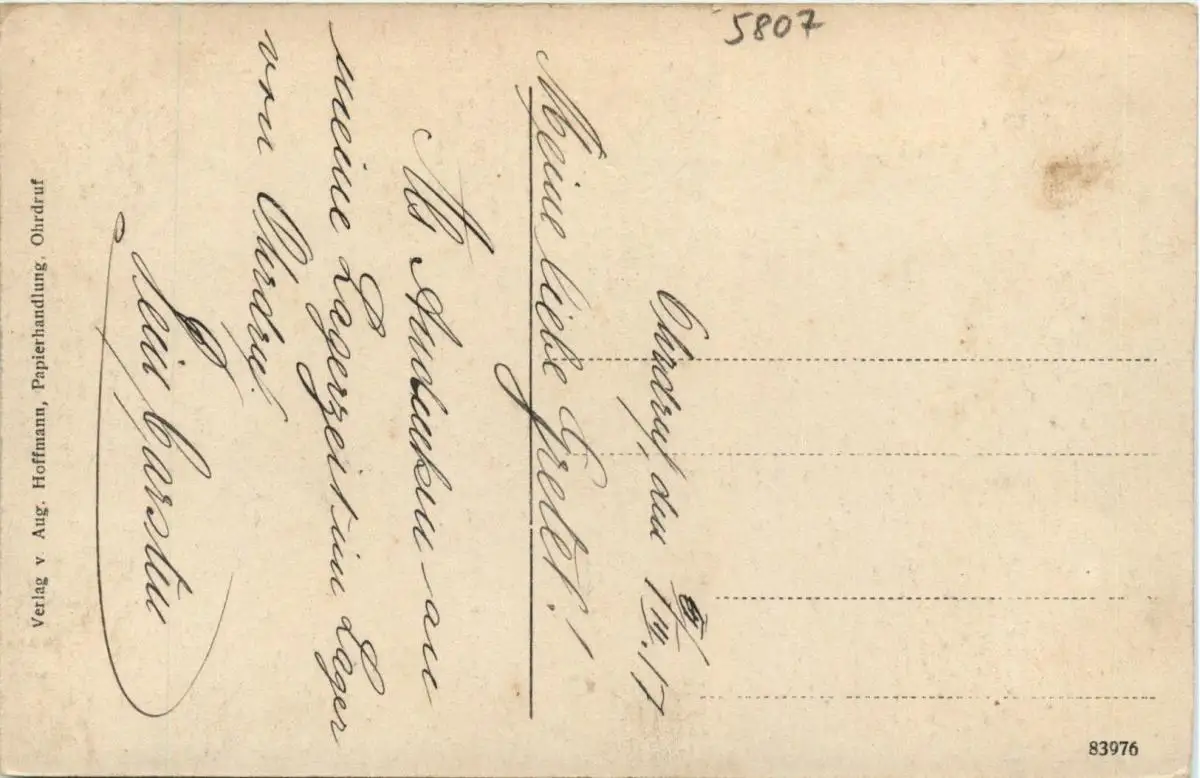 5807
Ohrdruf, den 5/4.17
Meine liebe Gretel!
Als Andenken an
meine Lagerzeit im Lager
von Ohrdruf.
Dein Carsten
Verlag v Aug. Hoffmann, Papierhandlung, Ohrdruf
83976